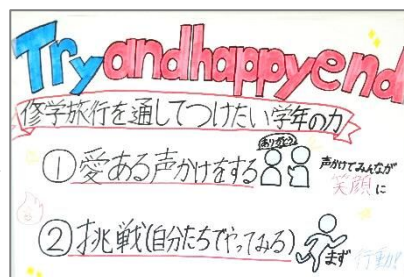 Try and happy end
修学旅行を通してつけたい学年の力
①愛ある声かけをする
ありがとう
声かけてみんなが
笑顔に
②挑戦(自分たちでやってみる)
まず 行動!!